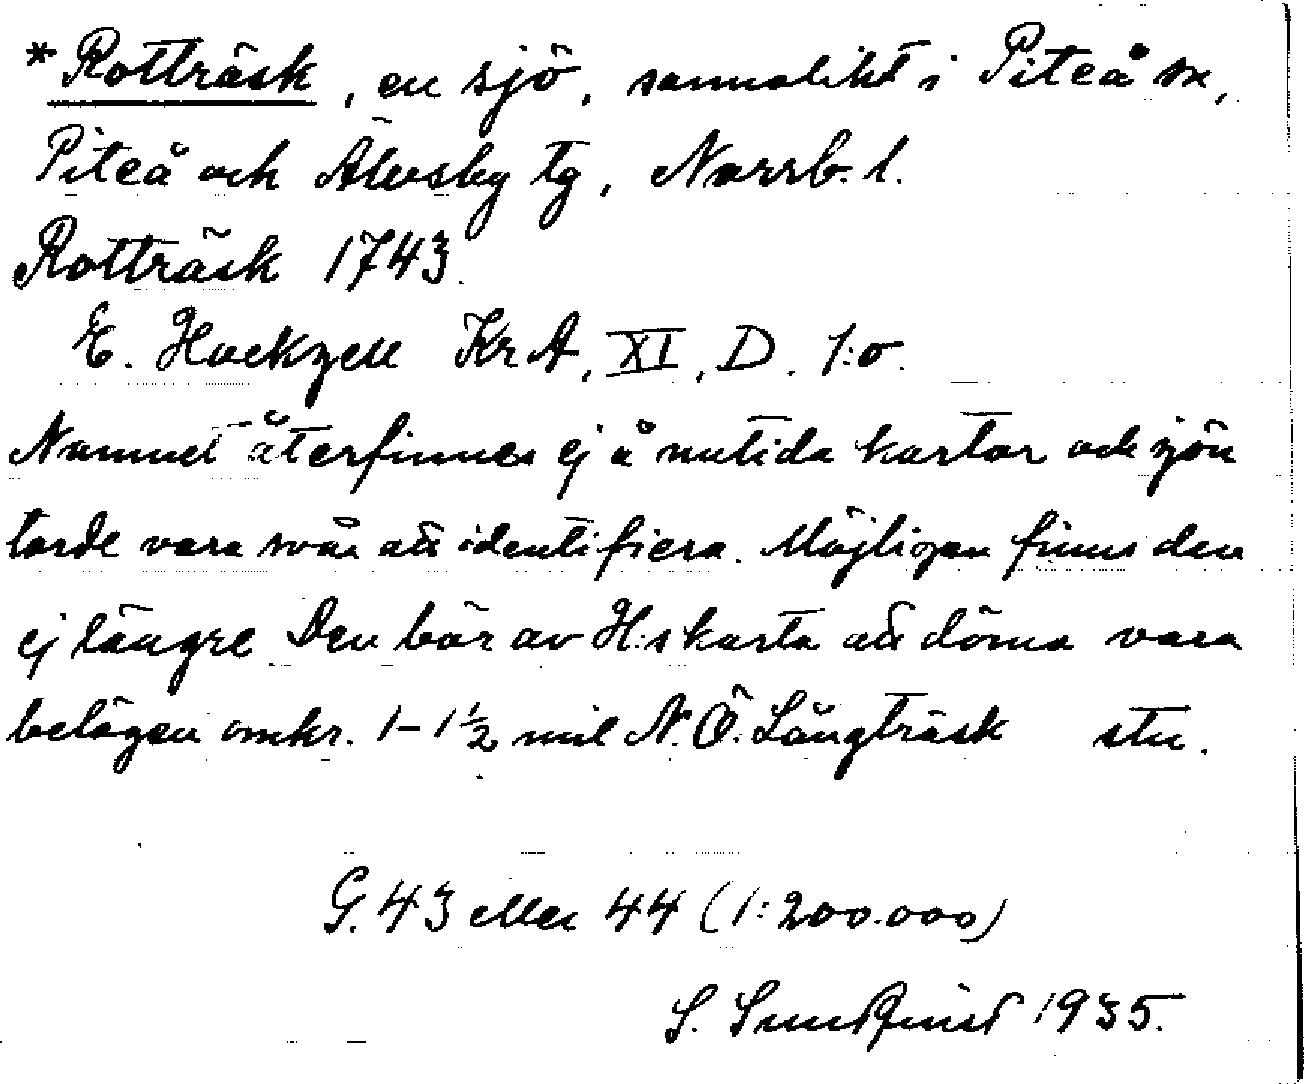 *Rotträsk, en sjö, sannolikt i Piteå sn,
Piteå och Älvsby tg, Norrb. l.
Rotträsk 1743.
E. Hackzell Kr A, XI, D. 1:o.
Namnet återfinnes ej å nutida kartor och sjön
torde vara svår att identifiera. Möjligen finns den
ej längre. Den bör av H:s karta att döma vara
belägen omkr. 1-1½ mil N.Ö. Långträsk stn.
G. 43 eller 44 (1:200.000)
S. Sundqvist 1935.